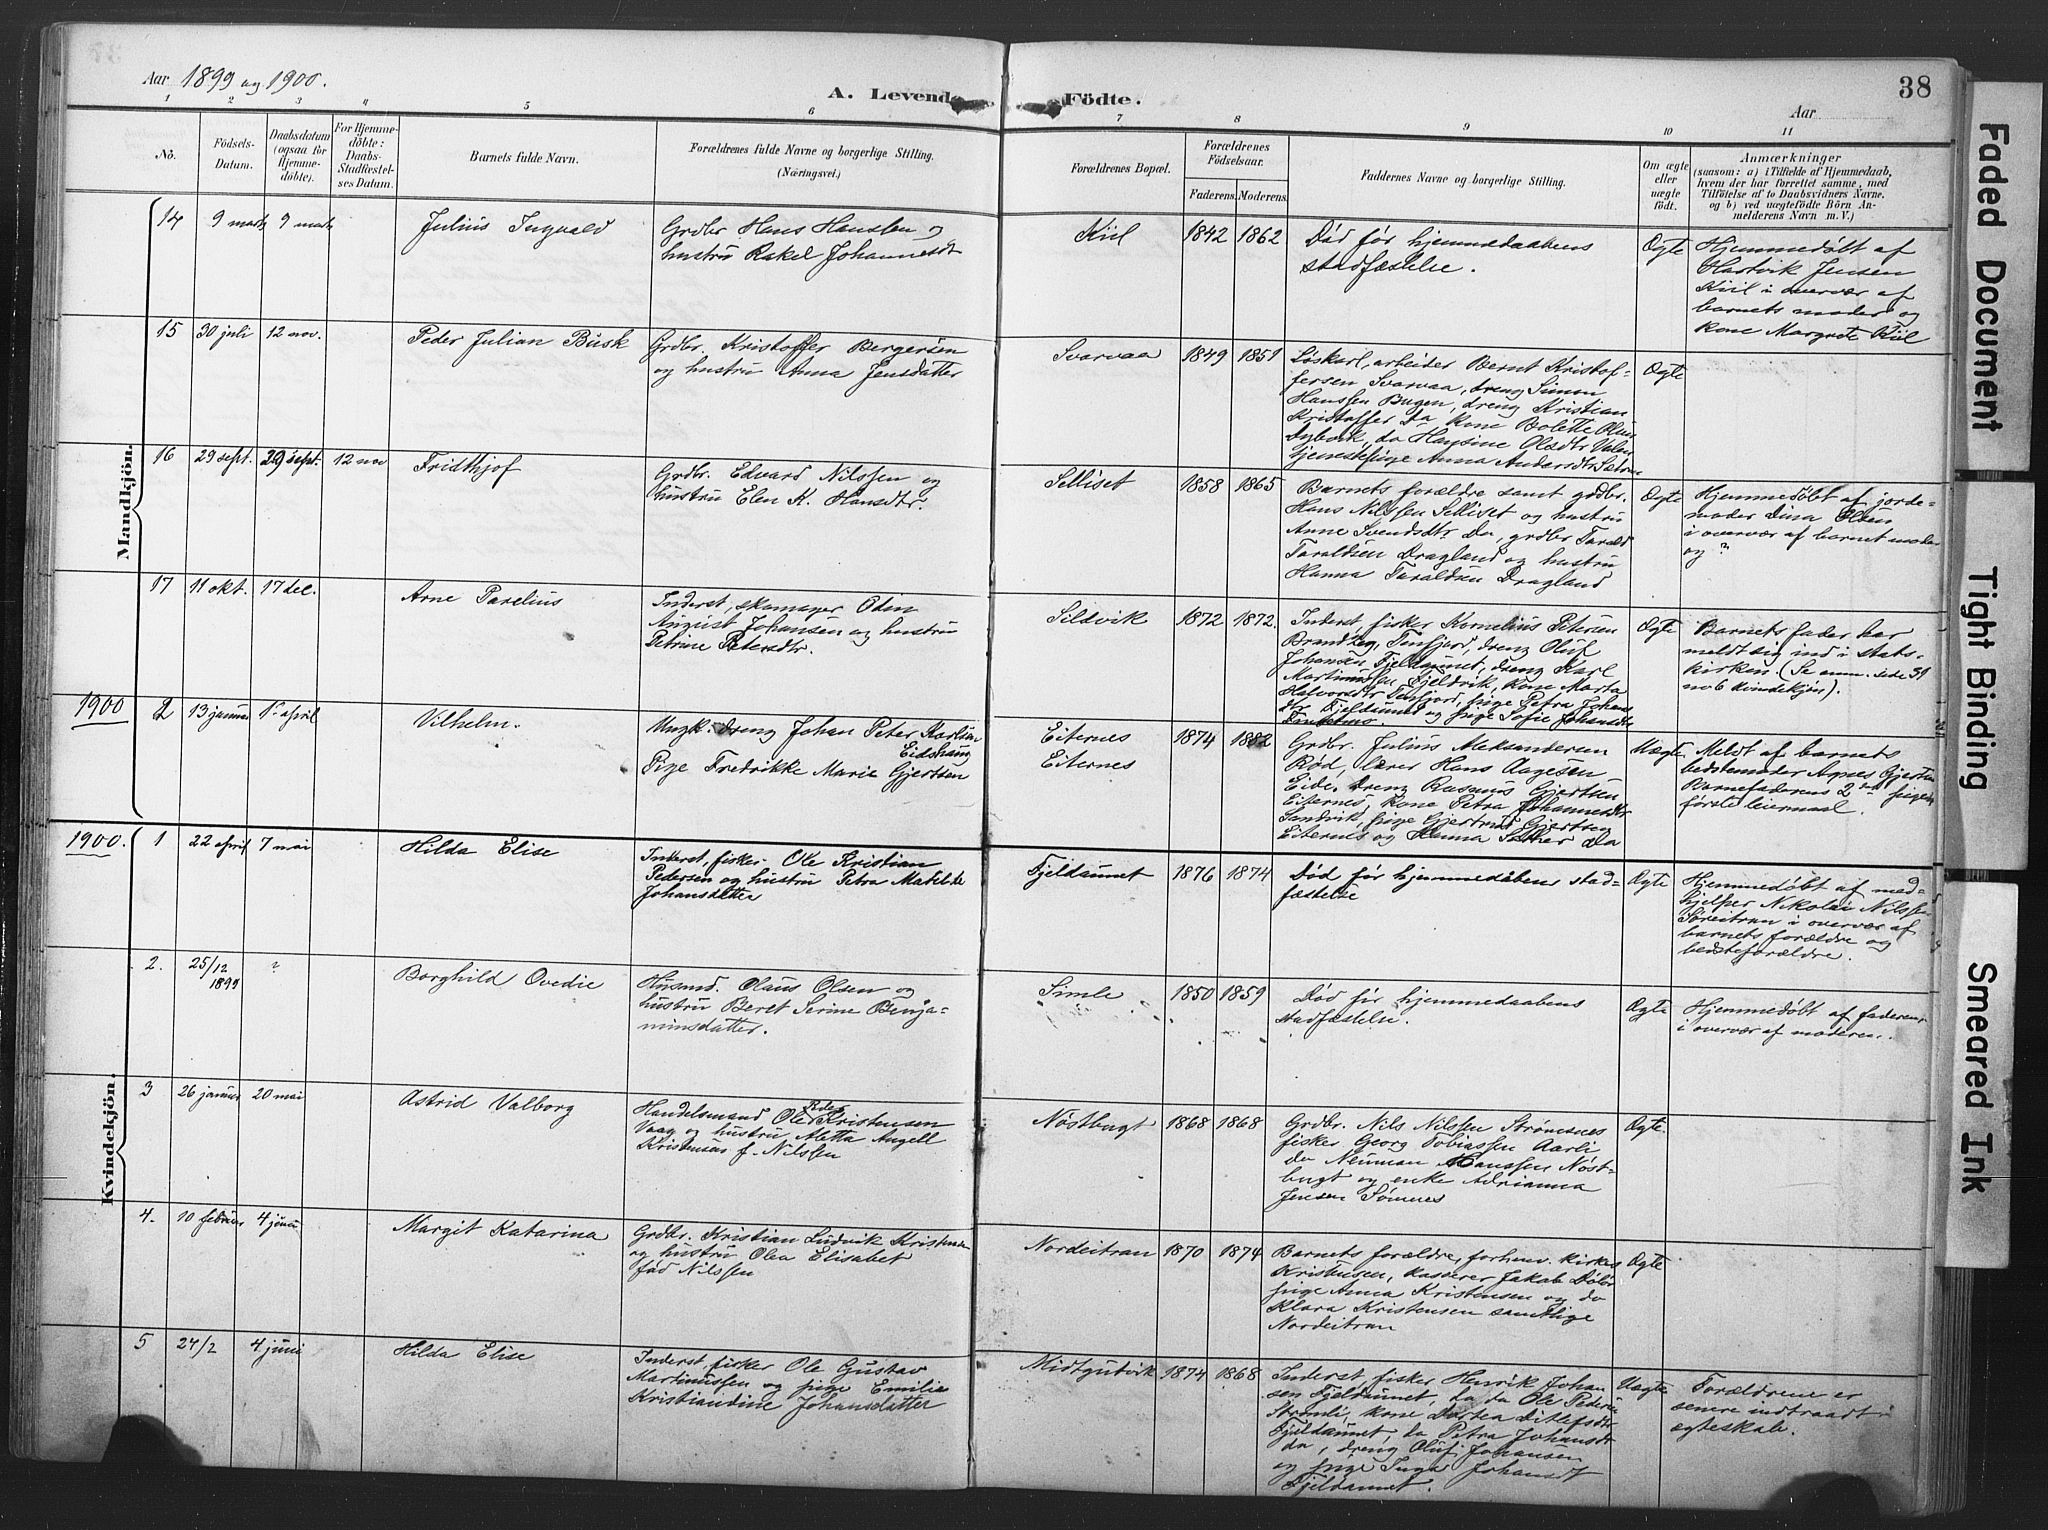 Aar 1899 og 1900.
A. Levende Födte.
Aar
38
1 2 3 4 5 6 7 8 9 10 11
No.
Födsels-
Datum.
Daabsdatum
(ogsaa for
Hjemme-
döbte).
For Hjemme-
döbte:
Daabs-
Stadfæstel-
ses Datum.
Barnets fulde Navn.
Forældrenes fulde Navne og borgerlige Stilling.
(Næringsvei.)
Forældrenes Bopæl.
Forældrenes
Födselsaar.
Faderens. Moderens.
Faddernes Navne og borgerlige Stilling.
Om ægte
eller
uægte
födt.
Anmærkninger
(saasom: a) i Tilfælde af Hjemmedaab,
hvem der har forrettet samme, med
Tilföielse af to Daabsvidners Navne.
og b) ved uægtefödte Börn An-
melderens Navn m. V.)
Mandkjön.
14 9 marts 9 marts
Julius Ingvald
Grdbr Hans Hanssen og
hustru Rakel Johannesdt
Kiil
1842 1862
Død før hjemmedaabens
stadfæstelse.
Ægte
Hjemmedøbt af
Hartvik Jensen
Kiil i overvær af
barnets moder og
kone Margrete Kiil
15 30 juli 12 nov.
Peder Julian Busk
Grdbr. Kristoffer Bergersen
og hustru Anna Jensdatter
Svarvaa
1849 1851
Løskarl, arbeider Bernt Kristof-
fersen Svarvaa, dreng Simon
Hanssen Bugen, dreng Kristian
Kristoffer Do kone Bolette Olsen
Dybvik, do Hansine Olsdtr
tjenestepige Anna Andersdtr
Ægte
16 29 sept. 29 sept. 12 nov
Fridthjof
Grdbr. Edvard Nilssen og
hustru Elen K. Hansdtr.
Selliset
1858 1865
Barnets forældre samt grdbr.
Hans Nilssen Selliset og hustru
Anne Svendsdtr Do, grdbr Tarald
Taraldsen Dragland og hustru
Hanna Taraldsen Dragland
Ægte
Hjemmedøbt af jorde-
moder Dina Olsen
i overvær af barnet moder
og ?
17 11 okt. 17 dec.
Arne Parelius
Inderst, skomager Odin
August Johansen og hustru
Petrine Petersdtr.
Sildvik
1872 1872.
Inderst, fisker Kornelius Petersen
Brandseg, Tenfjord, dreng Oluf
Johansen Fjeldaunet, dreng Karl
Martinussen Fjeldvik, kone Marta
Halvorsdtr Tenfjord, pige Petra Johans
dtr Fjeldaunet og pige Sofie Johansdtr
Ægte
Barnets fader har
meldt sig ind i stats-
kirken. (Se anm. side 31
no 6 kvindekjøn).
1900 2 13 januar 1ste april
Vilhelm.
Ungk. dreng Johan Peter Karlsen
Eidshaug
Pige Fredrikke Marie Gjertsen
Eiternes
Eiternes
1874 1882
Grdbr. Julius Aleksandersen
Rød, lærer Hans Aagesen
Eide, dreng Rasmus Gjertsen
Eiternes, kone Petra Johannesdtr
Sandvik, pige Gjertrud Gjertsen
Eiternes og Hanna Sæther Do
Uægte
Meldt af barnets
bedstemoder Agnes Gjertsen
Barnefaderens 2det pigens
første leiermaal.
Kvindekjön.
1900. 1 22 april 7 mai
Hilda Elise
Inderst, fisker Ole Kristian
Pedersen og hustru Petra Matilde
Johansdatter
Fjeldaunet
1876 1874
Død før hjemmedåbens stad-
fæstelse
Ægte
Hjemmedøbt af med-
hjelper Nikolai Nilssen
Søreitran i overvær af
barnets forældre og
bedsteforældre.
2. 25/12 1899 ?
Borghild Ovedie
Husmd. Olaus Olsen og
hustru Beret Serine Benja-
minsdatter.
Simle
1850 1859
Død før hjemmedaabens
stadfæstelse.
Ægte
Hjemmedøbt af faderen
i overvær af moderen.
3 26 januar 20 mai
Astrid Valborg
Handelsmand Ole Peder Kristensen
Vaag og hustru Aletta Angell
Kristensen f. Nilssen
Nøstbugt
1868 1868
Grdbr. Nils Nilssen Strømsnes
fisker Georg Tobiassen Aarli
do Neuman Hanssen Nøst-
bugt og enke Adrianna
Jensen Sømnes
Ægte
4. 10 februar 4 juni
Margit Katarina
Grdbr. Kristian Ludvik Kristensen
og hustru Olea Elisabet
fød Nilssen
Nordeitran
1870 1874
Barnets forældre, forhenv. kirkes
Kristensen, kasserer Jakob
pige Anna Kristensen og do
Klara Kristensen samtlige
Nordeitran
Ægte
5 24/2 4 juni
Hilda Elise
Inderst, fisker Ole Gustav
Martinussen og pige Emilie
Kristiandine Johansdatter
Midtgutvik
1874 1868
Inderst, fisker Henrik Johan
sen Fjeldaunet, do do Ole Peders
Strømli, kone Dortea Ditlefsdtr
Fjeldaunet, do Petra Johansdt
do, dreng Oluf Johansen
og pige Inga Johansdt
Fjeldaunet.
Uægte
Forældrene er
senere indtraadt i
ægteskab.
Faded Document
Tight Binding
Smeared Ink